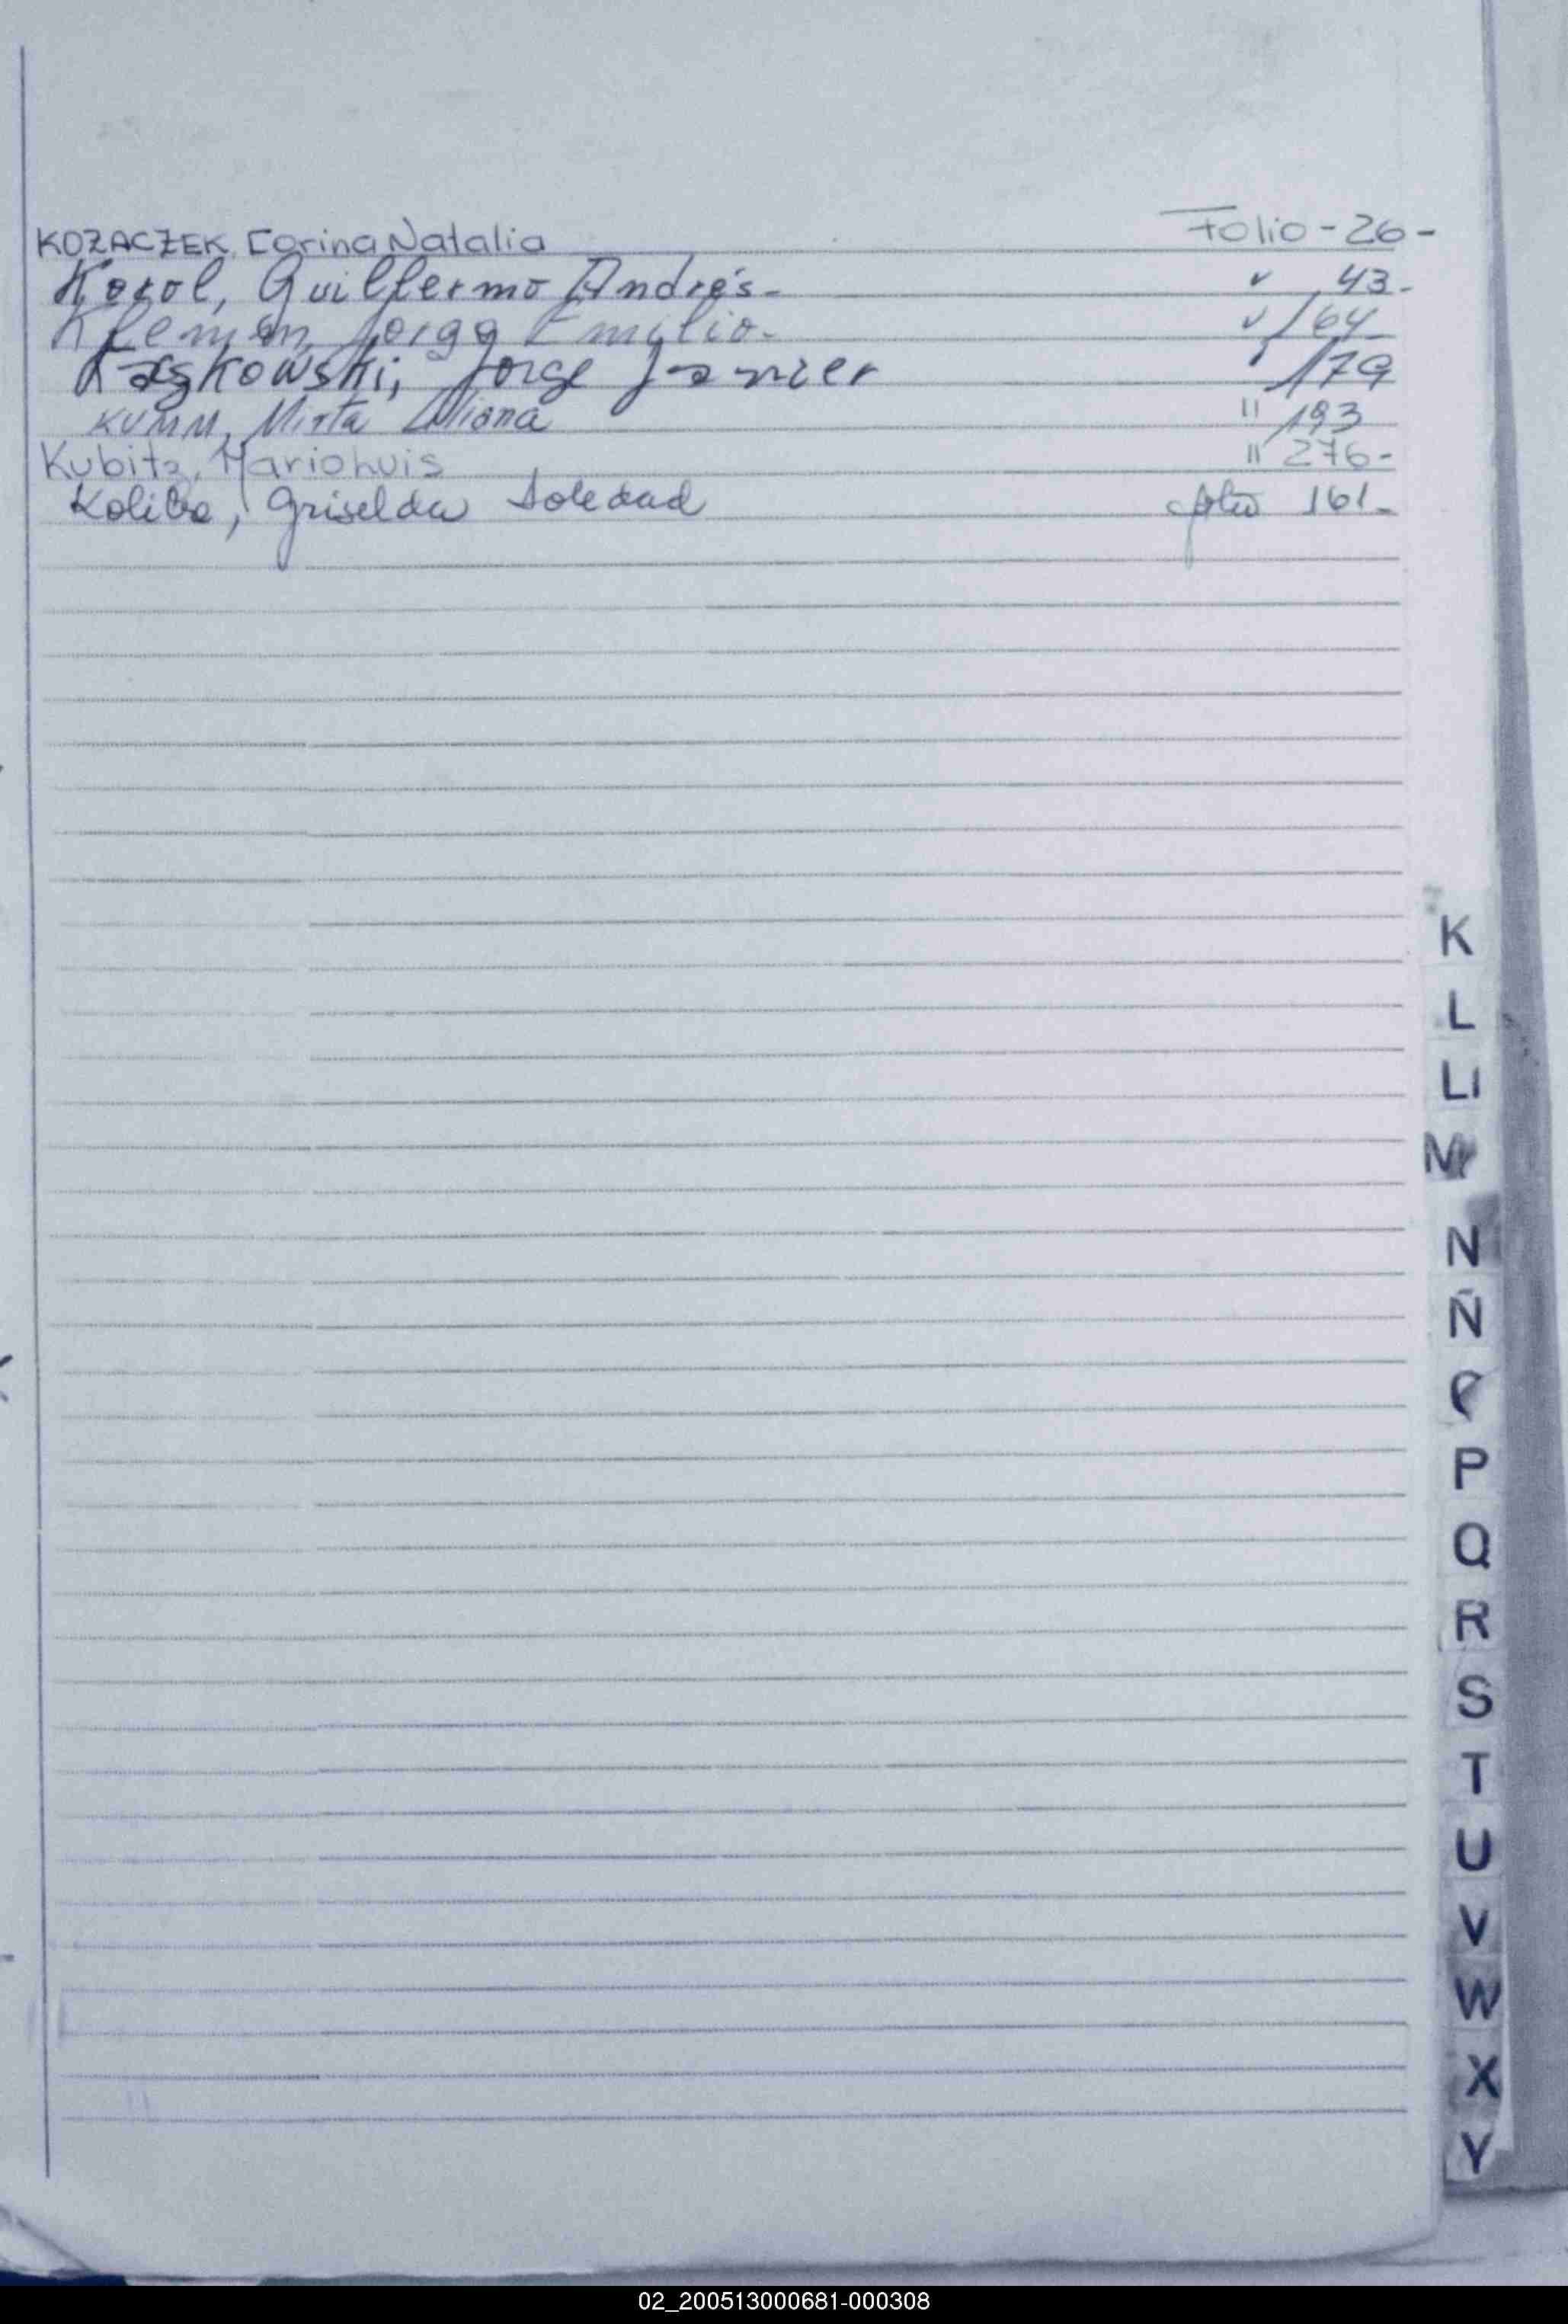 KOZACZEK, Carina Natalia Folio - 26 -
Korol, Guillermo Andrés - " 43 -
Kleman, Jorge Emilio - " 164
Kaskowski, Jorge Javier " 179
KUMM, Mirta Liliana " 193
Kubitz, Mario Luis " 276 -
Koliba, Griselda Soledad folio 161 -
K
L
Ll
M
N
Ñ
O
P
Q
R
S
T
U
V
W
X
Y
02_200513000681-000308